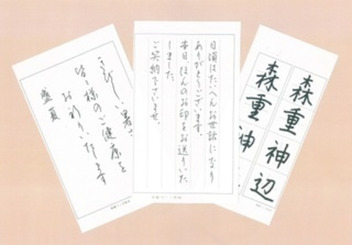 きびしい暑さ
皆々様のご健康を
お祈りいたします
盛夏
日頃はたいへんお世話になり
ありがとうございます。
本日、ほんのお印をお送りいた
しました。
ご笑納下さいませ。
森重神辺
森重神